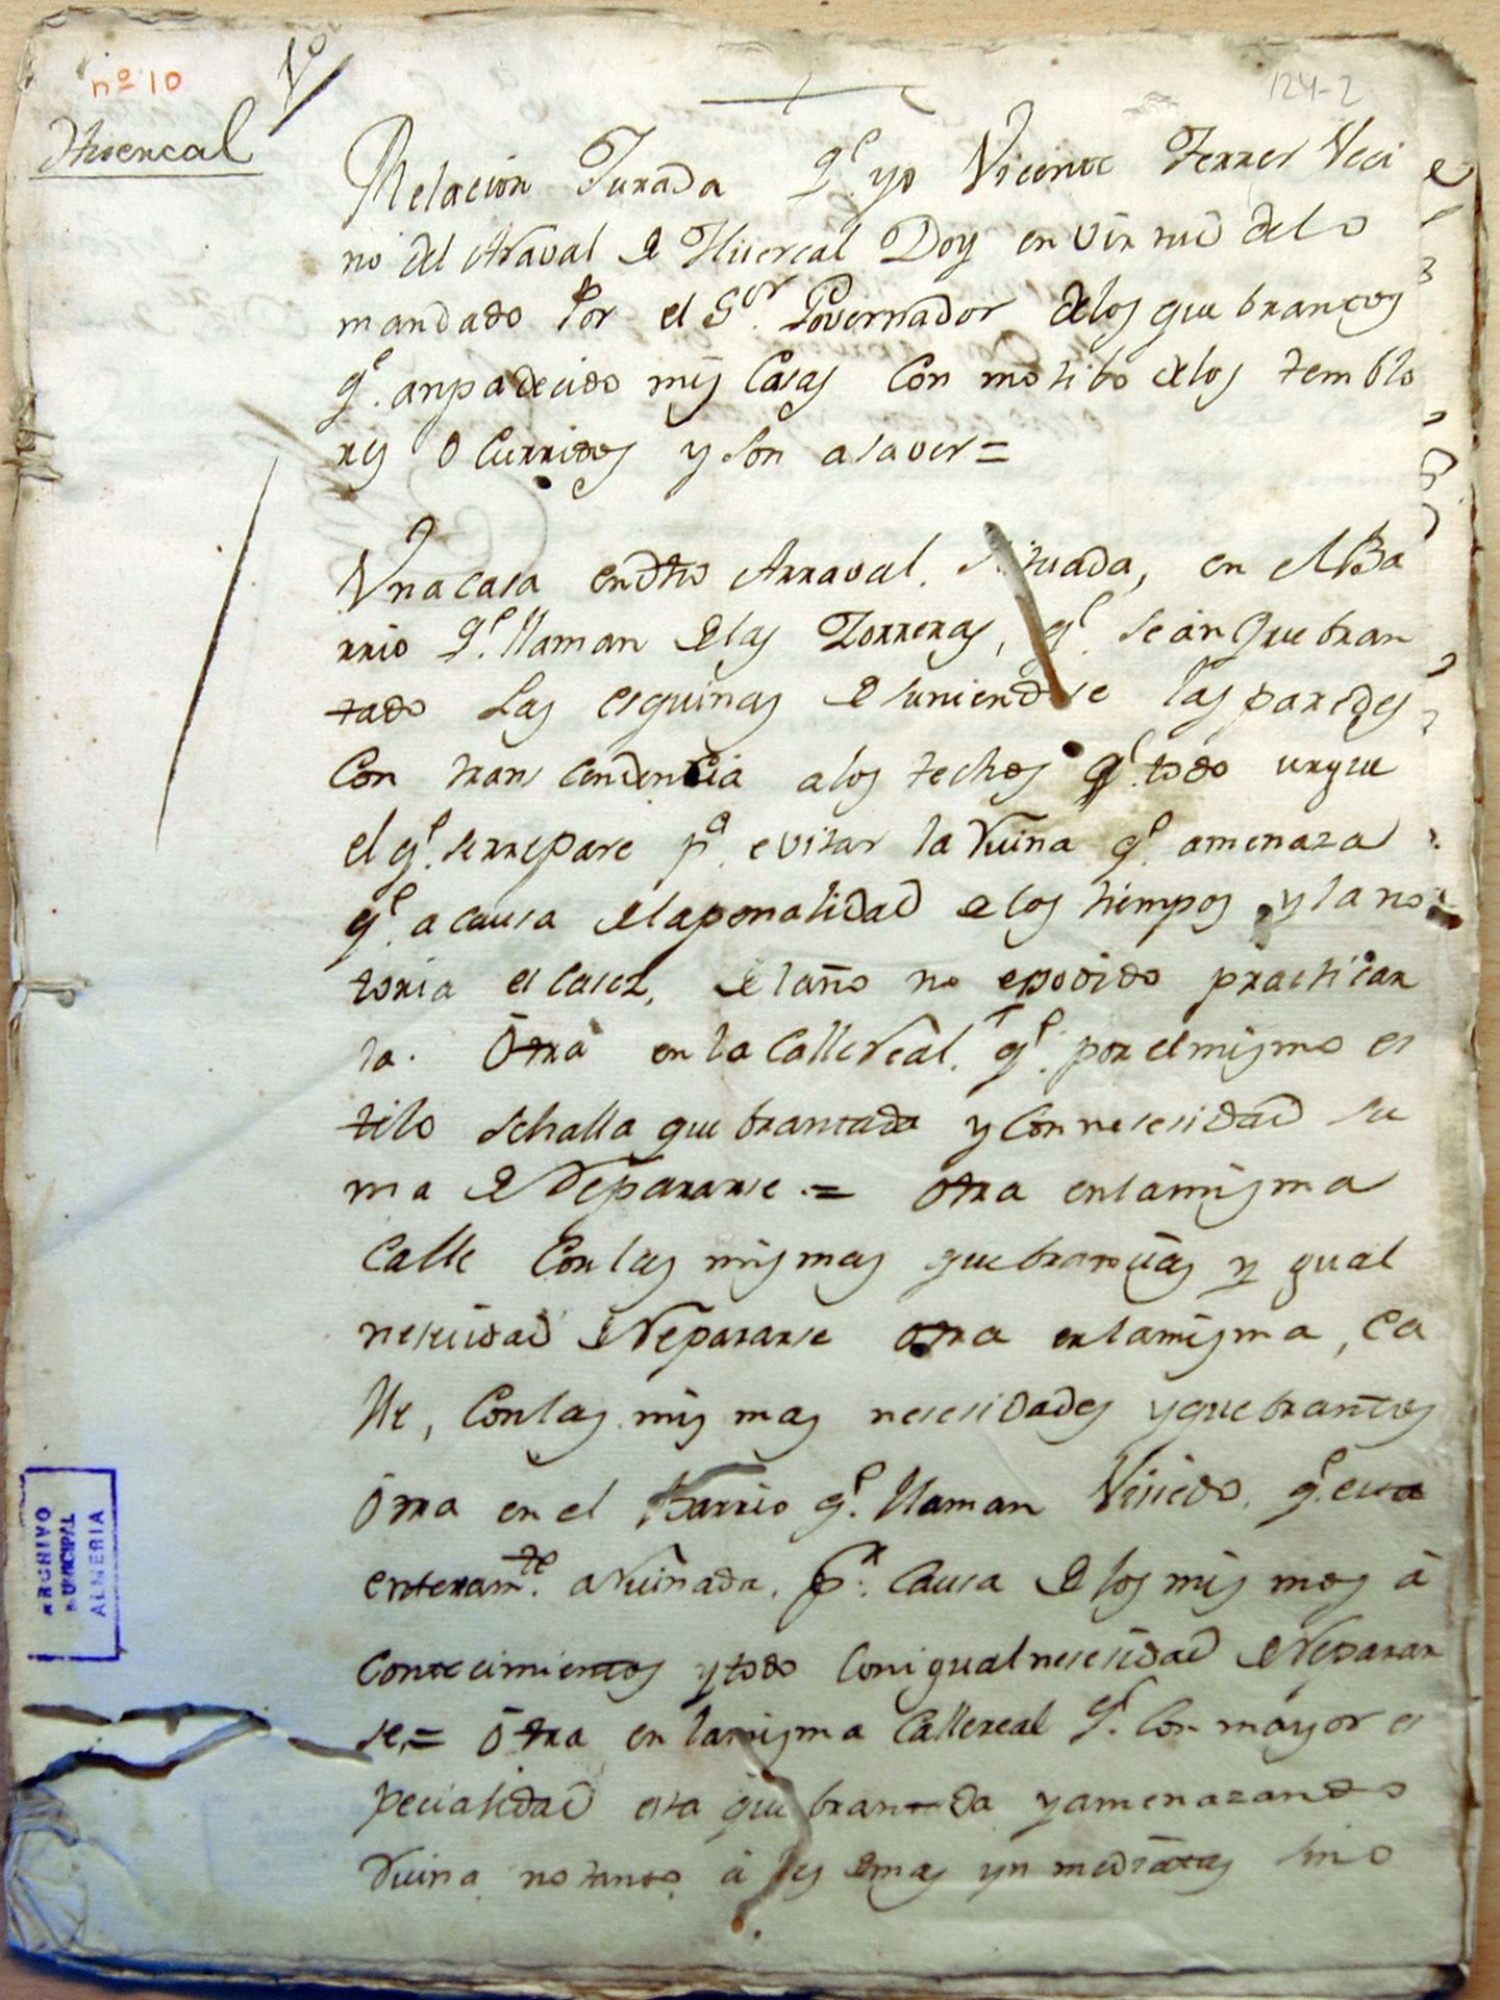 nº 10
Vº
124-2
Huercal
Relacion Jurada qe. yo Vicente Ferrer Veci
no del Araval de Huercal Doy en virtud de lo
mandado Por el Sor. Governador de los quebrantos
qe. an padecido mis Casas Con motibo de los temblo
res Ocurridos y son a saver =
Una casa en dho Arraval situada, en el Ba
rrio qe. llaman de las Torreras, qe. se an quebran
tado las esquinas desuniendose las paredes
Con transcendencia a los techos qe. todo urgue
el qe. se rrepare pa. evitar la Ruina qe. amenaza
qe. a causa de la penalidad de los tiempos y la no
toria escasez, del año no e podido practicar
la. Otra en la Calle Real. qe. por el mismo es
tilo se halla quebrantada y con nesesidad su
ma de Repararse. = Otra en la misma
Calle Con las mismas quebrantias y gual
nesesidad de Repararse otra en la misma, ca
lle, Con las mismas nesesidades y quebrantos
Otra en el Barrio qe. llaman qe. esta
enteramte. aRuinada. pr. Causa de los mismos a
contecimientos y todo con igual nesesidad de Reparar
se, = Otra en la misma Calle real qe. Con mayor es
pecialidad esta quebrantada y amenazando
Ruina no tanto á las demas ynmediatas sino
ARCHIVO
MUNICIPAL
ALMERIA